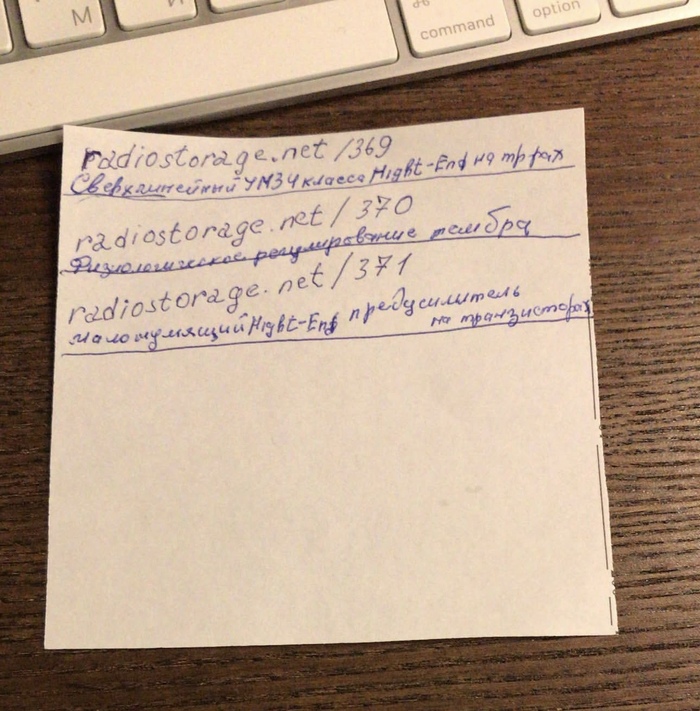 М
И
⌘
command
option
radiostorage.net/369
Сверхлинейный УМЗЧ класса Hight-End на тр рах
radiostorage.net/370
Физиологическое регулирование тембра
radiostorage.net/371
малошумящий Hight-End предусилитель
на транзисторах